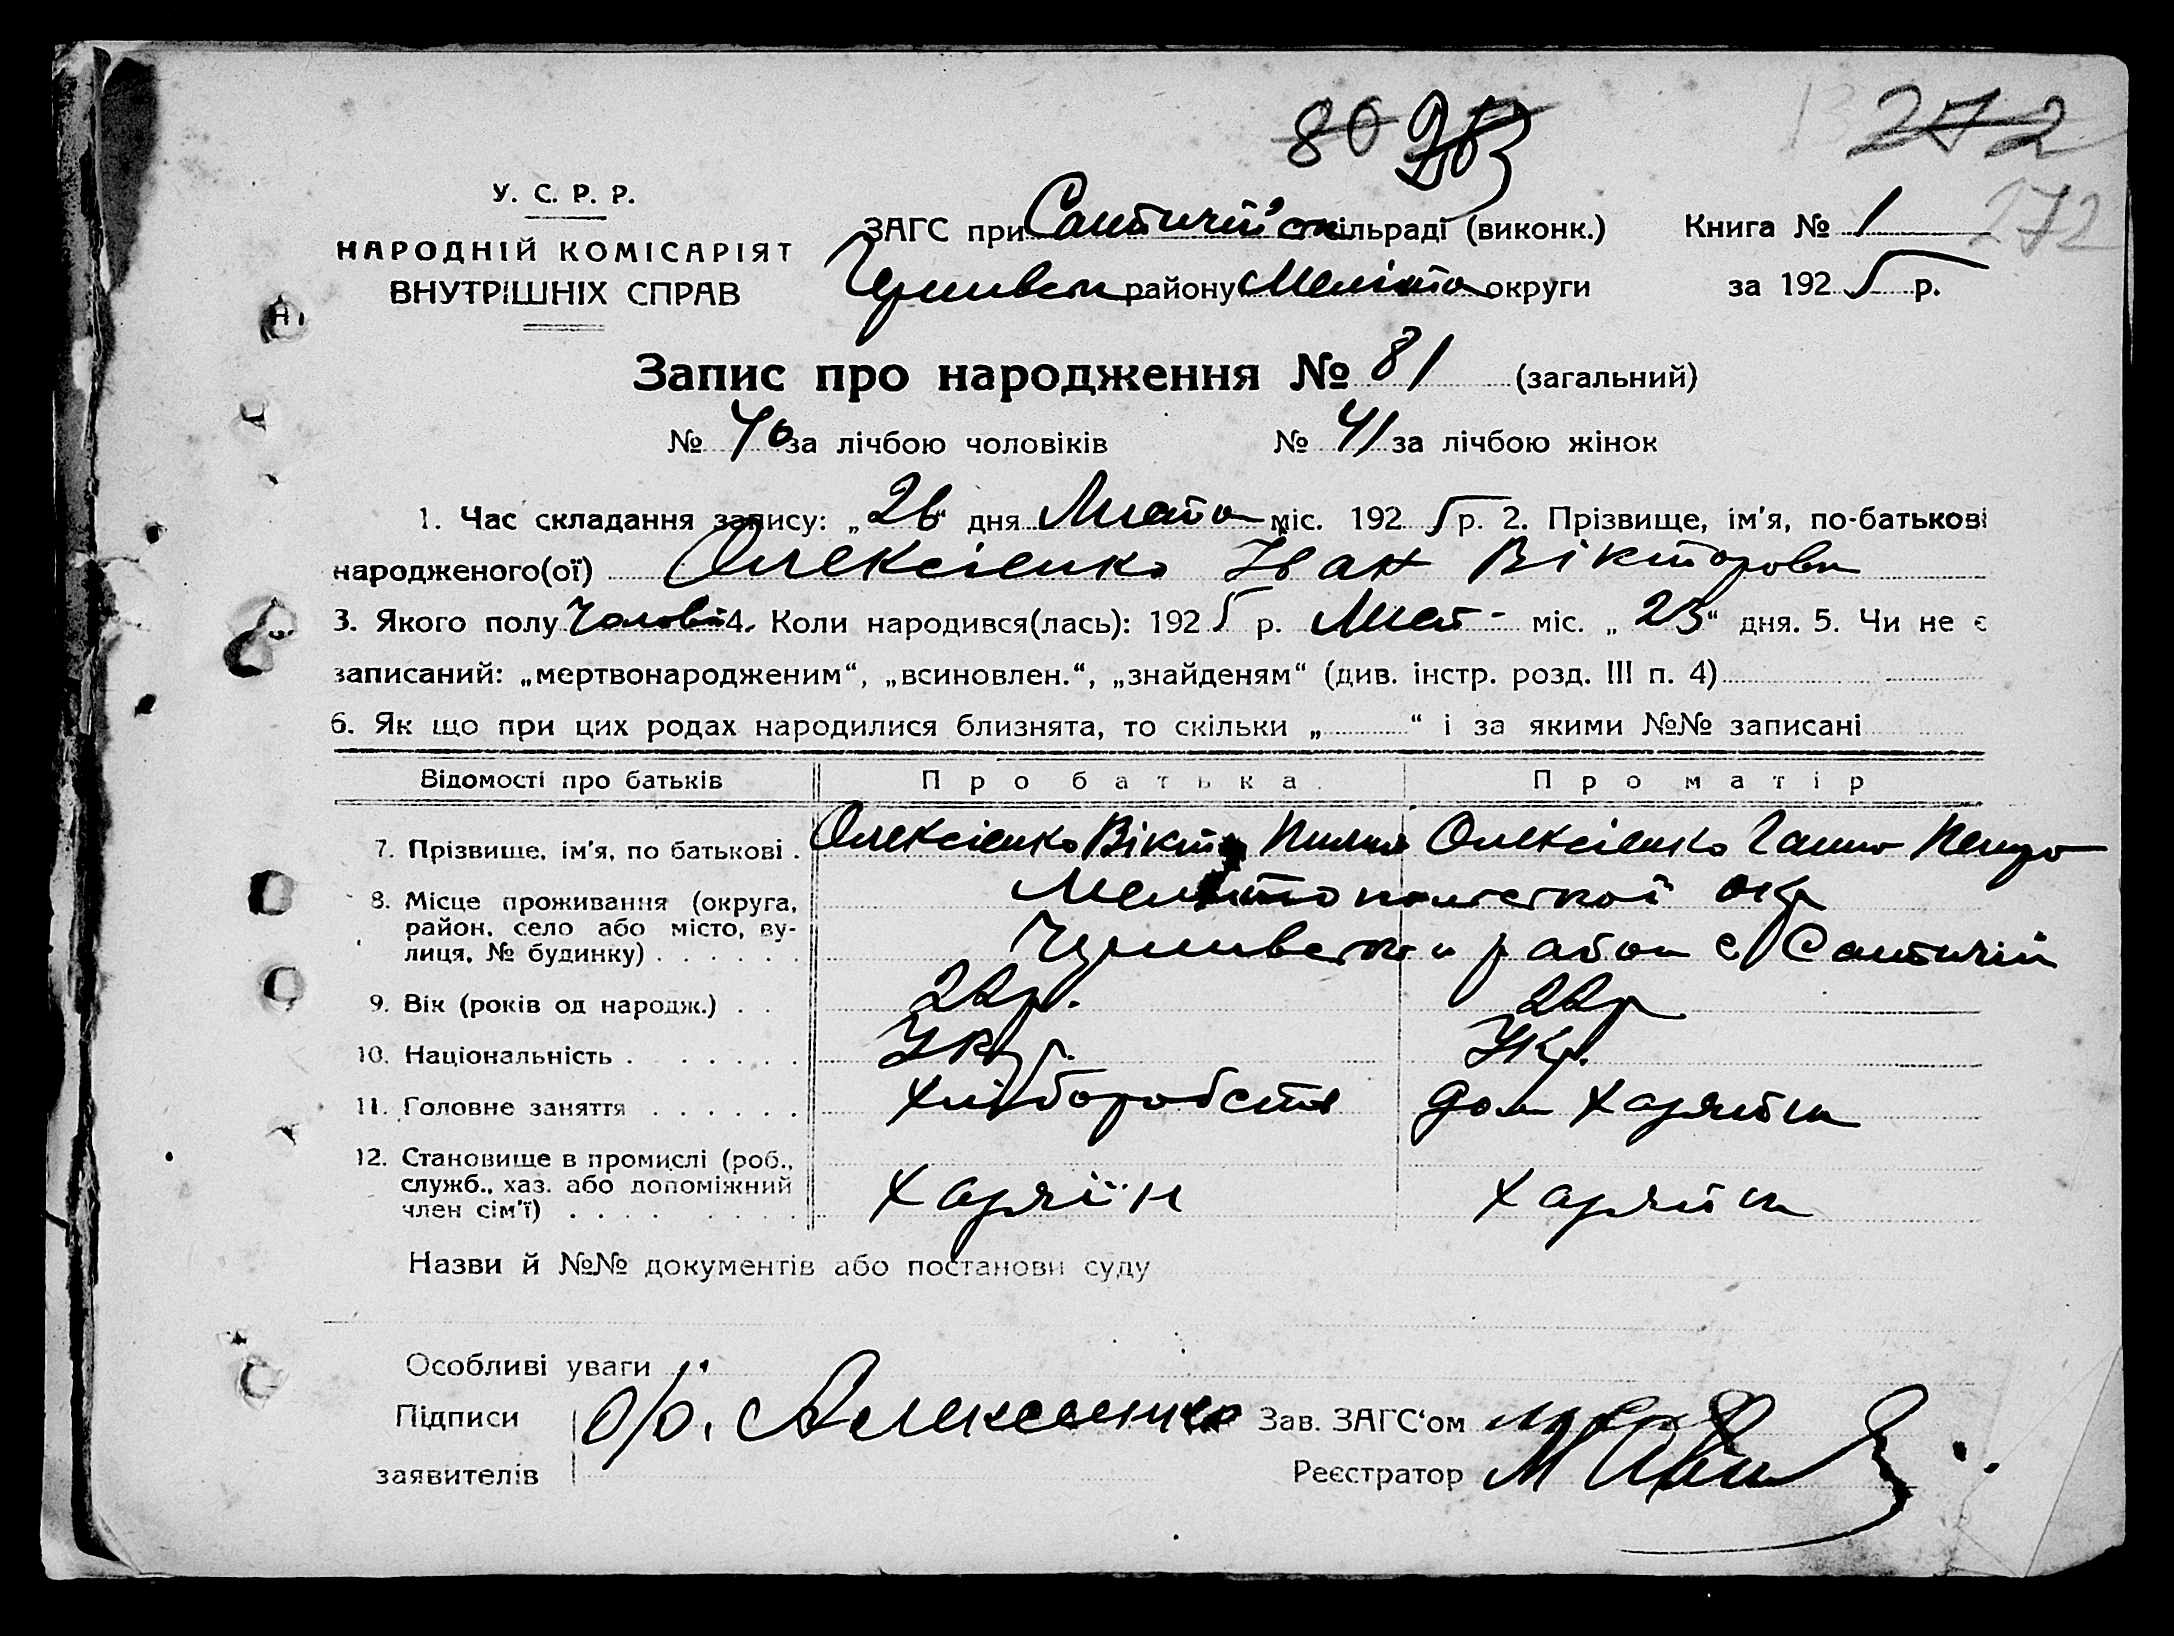 80 283 272
272
У. С. Р. Р.
НАРОДНІЙ КОМІСАРІЯТ
ВНУТРІШНІХ СПРАВ
ЗАГС при сільраді (виконк.) Книга № 1
району Меліто округи за 192 5 р.
Запис про народження № 81 (загальний)
№ 40 за лічбою чоловіків № 41 за лічбою жінок
1. Час складання запису: „26“ дня Листа міс. 192 5 р. 2. Прізвище, ім'я, по-батькові
народженого(ої) Олексієнко Іван Вікторов
3. Якого полу Чолові 4. Коли народився(лась): 192 5 р. Лист- міс. „23“ дня. 5. Чи не є
записаний: „мертвонародженим“, „всиновлен.“, „знайденям“ (див. інстр. розд. III п. 4)
6. Як що при цих родах народилися близнята, то скільки „ “ і за якими №№ записані
Відомості про батьків Про батька Про матір
7. Прізвище, ім'я, по батькові . Олексієнко Віктор Олексієнко Ганна
8. Місце проживання (округа, Мелітопольской окр
район, село або місто, ву- район с
лиця, № будинку) . . . . . .
9. Вік (років од народж.) . . 22р. 22р
10. Національність . . . . . . . Укр. Укр.
11. Головне заняття . . . . . . хліборобств дом хазяйка
12. Становище в промислі (роб.,
служб., хаз. або допоміжний хазяїн хазяйка
член сім'ї) . . . . . . . .
Назви й №№ документів або постанови суду
Особливі уваги
Підписи Алексеенко Зав. ЗАГС'ом
заявителів Реєстратор